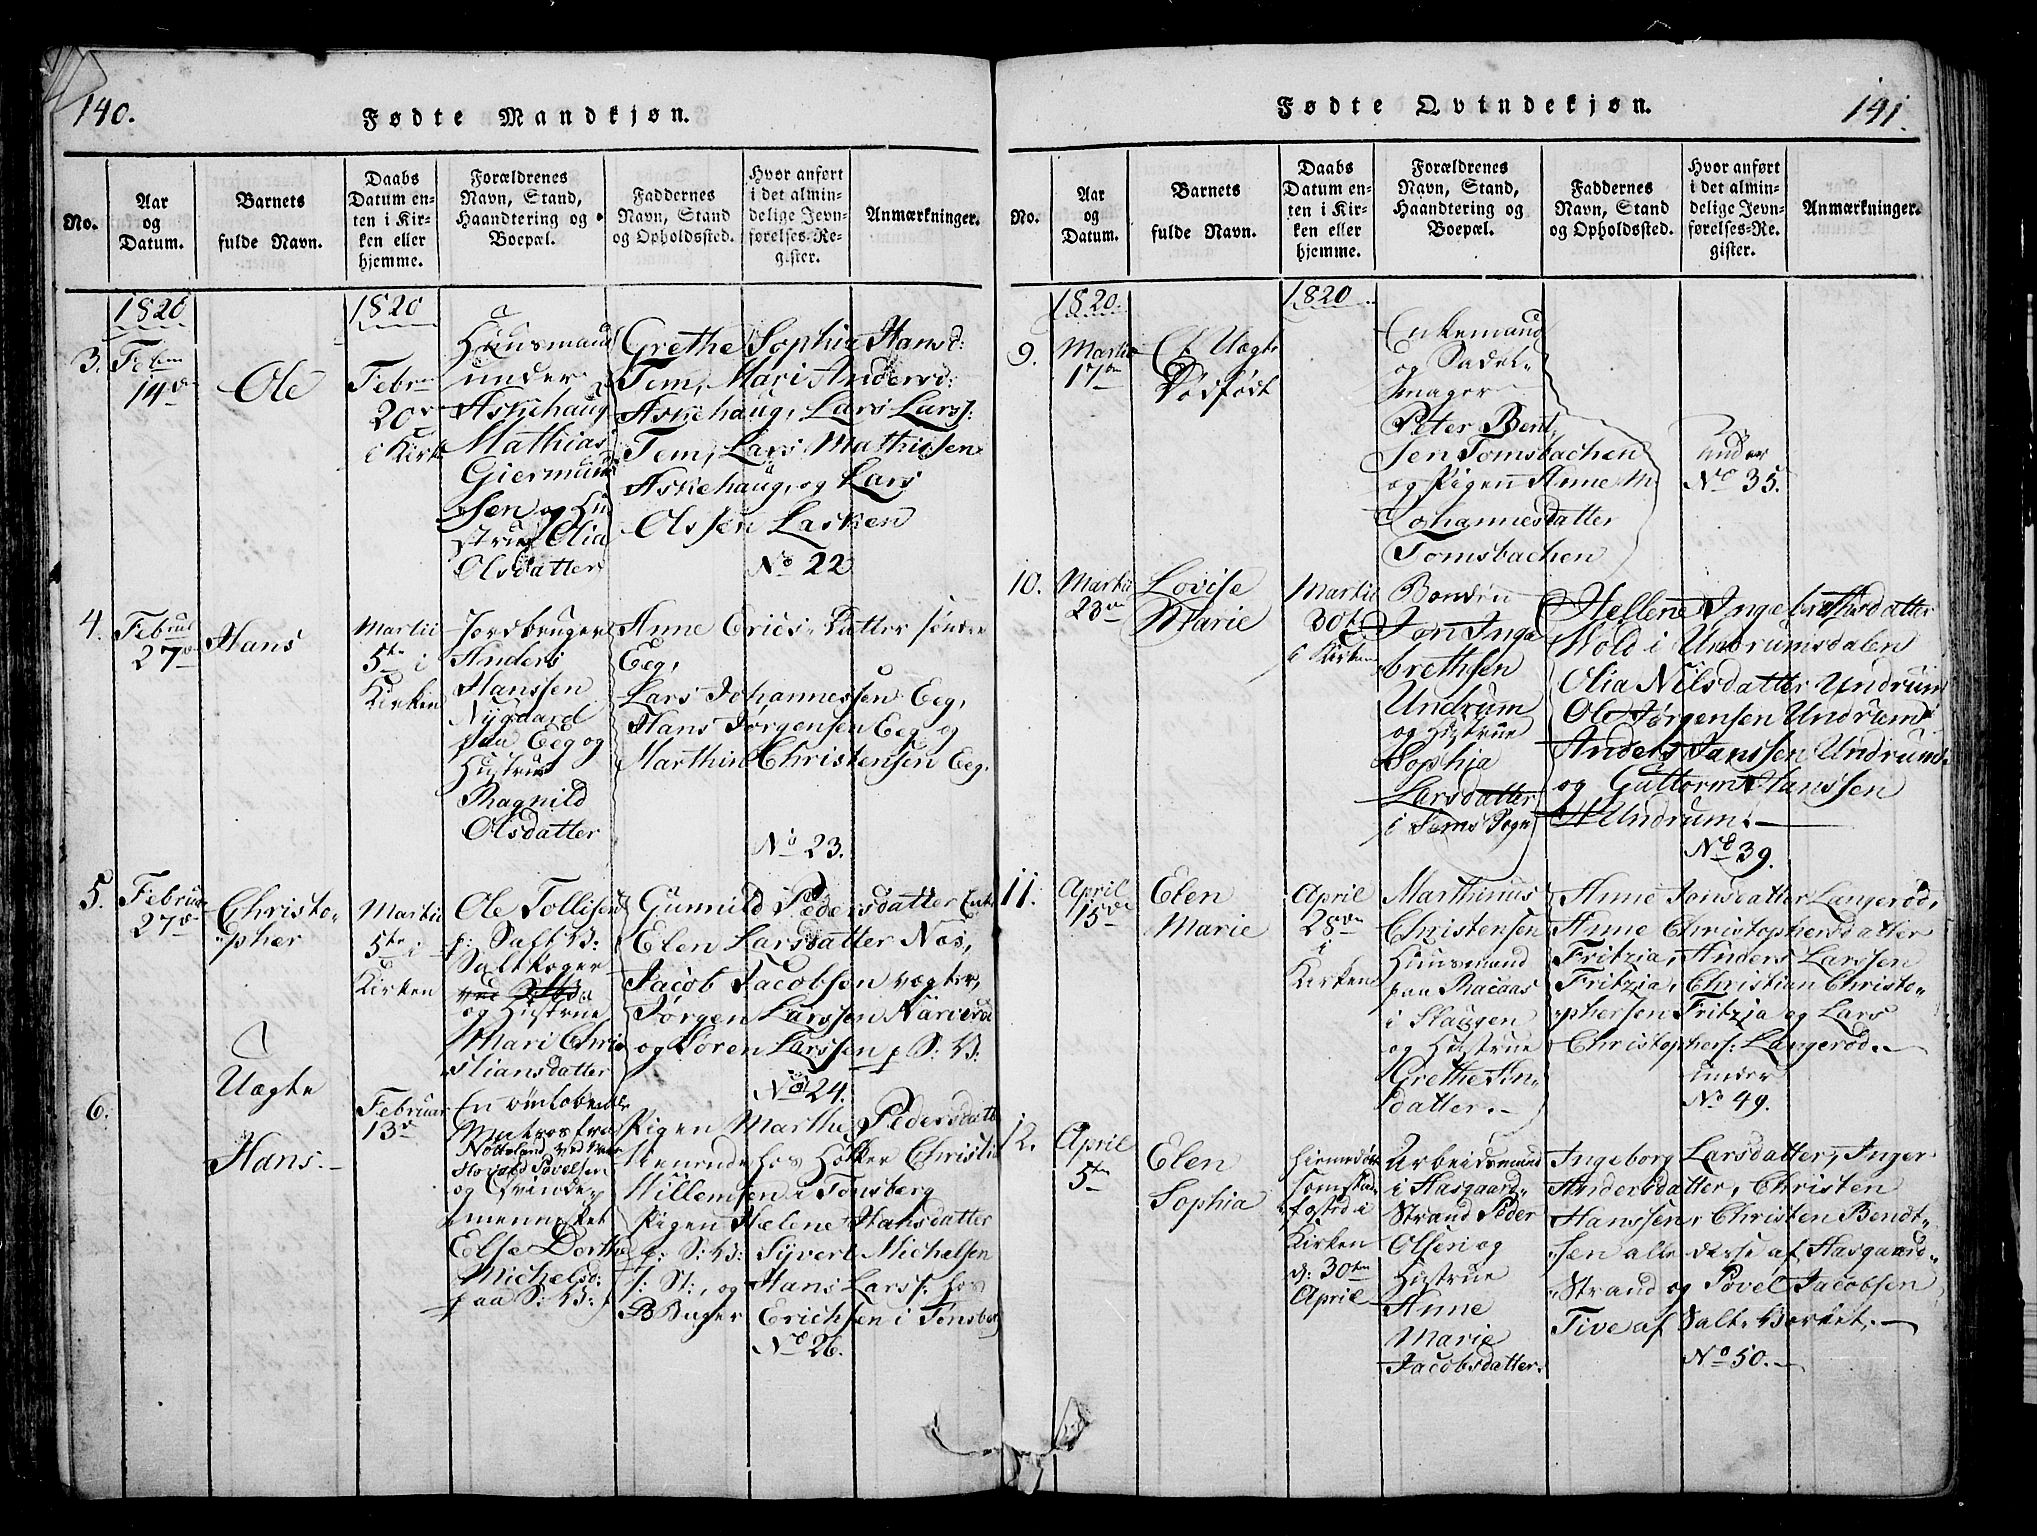 140.
Fødte Mandkjøn.
No.
Aar og Datum.
Barnets fulde Navn.
Daabs Datum enten i Kirken eller hjemme.
Forældrenes Navn, Stand, Haandtering og Boepæl.
Faddernes Navn, Stand og Opholdssted.
Hvor anført i det almindelige Jevnførelses-Register.
Anmærkninger.
1820
1820
3.
Febr
14de
Ole
Febr
20de
i Kirk
Huusmand
under
Askehaug
Mathias
Giermund
sen og Hu
strue Olia
Olsdatter
Grethe Sophie Hansd:
Tem, Mari Andersd:
Askehaug, Lars Larss:
Tem, Lars Mathissen
Askehaug, og Lars
Olssen Lasken
No 22
4.
Febru
27de
Hans
Martii
5te i
Kirken
Jordbruger
Anders
Hanssen
Nygaard
paa Eeg og
Hustrue
Ragnild
Olsdatter
Anne Erics-Datter søndre
Eeg,
Lars Johannessen Eeg,
Hans Jørgensen Eeg og
Marthin Christensen Eeg.
No 23.
5.
Februar
27de
Christo-
pher
Martii
5te i
Kirken
Ole Tollifsen
p: Salt V:
Saltkoger
og Hustrue
Mari Chri
stiansdatter
Gunnild Pedersdatter
Elen Larsdatter Nes,
Jacob Jacobsen vægter,
Jørgen Larssen
og Søren Larssen p S: V:
No 24.
6.
Uægte
Hans.
Februar
13de
En omløbende
Matros fra
og Qvinde-
mennesket
Else Dorthe
Michelsd:
paa S: V:
Pigen Marthe Pedersdatter
tienende hos Høker Christi
Willemsen i Tønsberg
Pigen Helene Hansdatter
p: S: V: Syvert Michelsen
s: St:, og Hans Larss: hos
Bager Erichsen i Tønsberg
No 26.
141.
Fødte Qvindekjøn.
No.
Aar og Datum.
Barnets fulde Navn.
Daabs Datum enten i Kirken eller hjemme.
Forældrenes Navn, Stand, Haandtering og Boepæl.
Faddernes Navn, Stand og Opholdssted.
Hvor anført i det almindelige Jevnførelses-Register.
Anmærkninger.
1820.
1820
9.
Martii
17de
Et Uægte
Dødfødt
Enkemand
og Sadel-
mager
Peter Bent
sen Tomsbachen
og Pigen Anne M.
Johannesdatter
Tomsbachen
under
No 35.
10.
Martii
23de
Lovise
Marie
Martii
30te
i Kirken
Bonden
Jon Inge
brethsen
Undrum
og Hustrue
Sophia
Larsdatter
i Sems Sogn
Hellene Ingebrethsdatter
Wold i Undrumsdalen
Olia Nilsdatter Undrum
Ole Jørgensen Undrum
Anders Janssen Undrum.
og Guttorm Hanssen
Undrum.
No 39.
11.
April
15de
Elen
Marie
April
28de
i
Kirken
Marthinus
Christensen
Huusmand
paa Racaas
i Slaugen
og Hustrue
Grethe An-
datter.
Anne Jonsdatter Langerød,
Anne Christophersdatter
Fritzia, Anders Larssen
Fritzia, Christian Christo-
phersen Fritzia og Lars
Christophers: Langerød.
under
No 49.
12.
April
5te
Elen
Sophia
Hiemedøbt
Kirken
d: 30te
April
Arbeidsmand
i Aasgaard-
Strand Peder
Olsen og
Hustrue
Anne
Marie
Jacobsdatter.
Ingeborg Larsdatter, Inger
Andersdatter, Christen
Hanssen, Christen Bendt-
sen alle disse af Aasgaard-
Strand og Povel Jacobsen
Tive af Salt-Værket.
No 50.